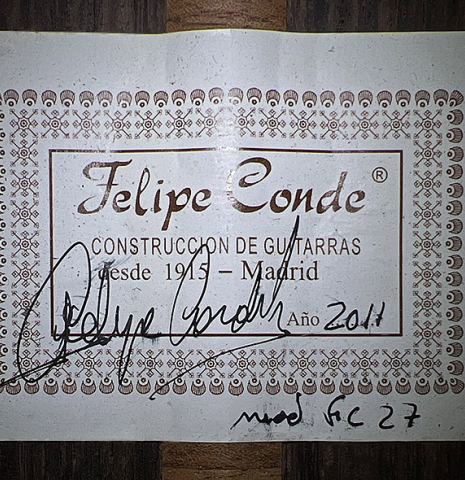 Felipe Conde®
CONSTRUCCION DE GUITARRAS
desde 1915 – Madrid
Felipe Conde
Año 2011
mod FC 27